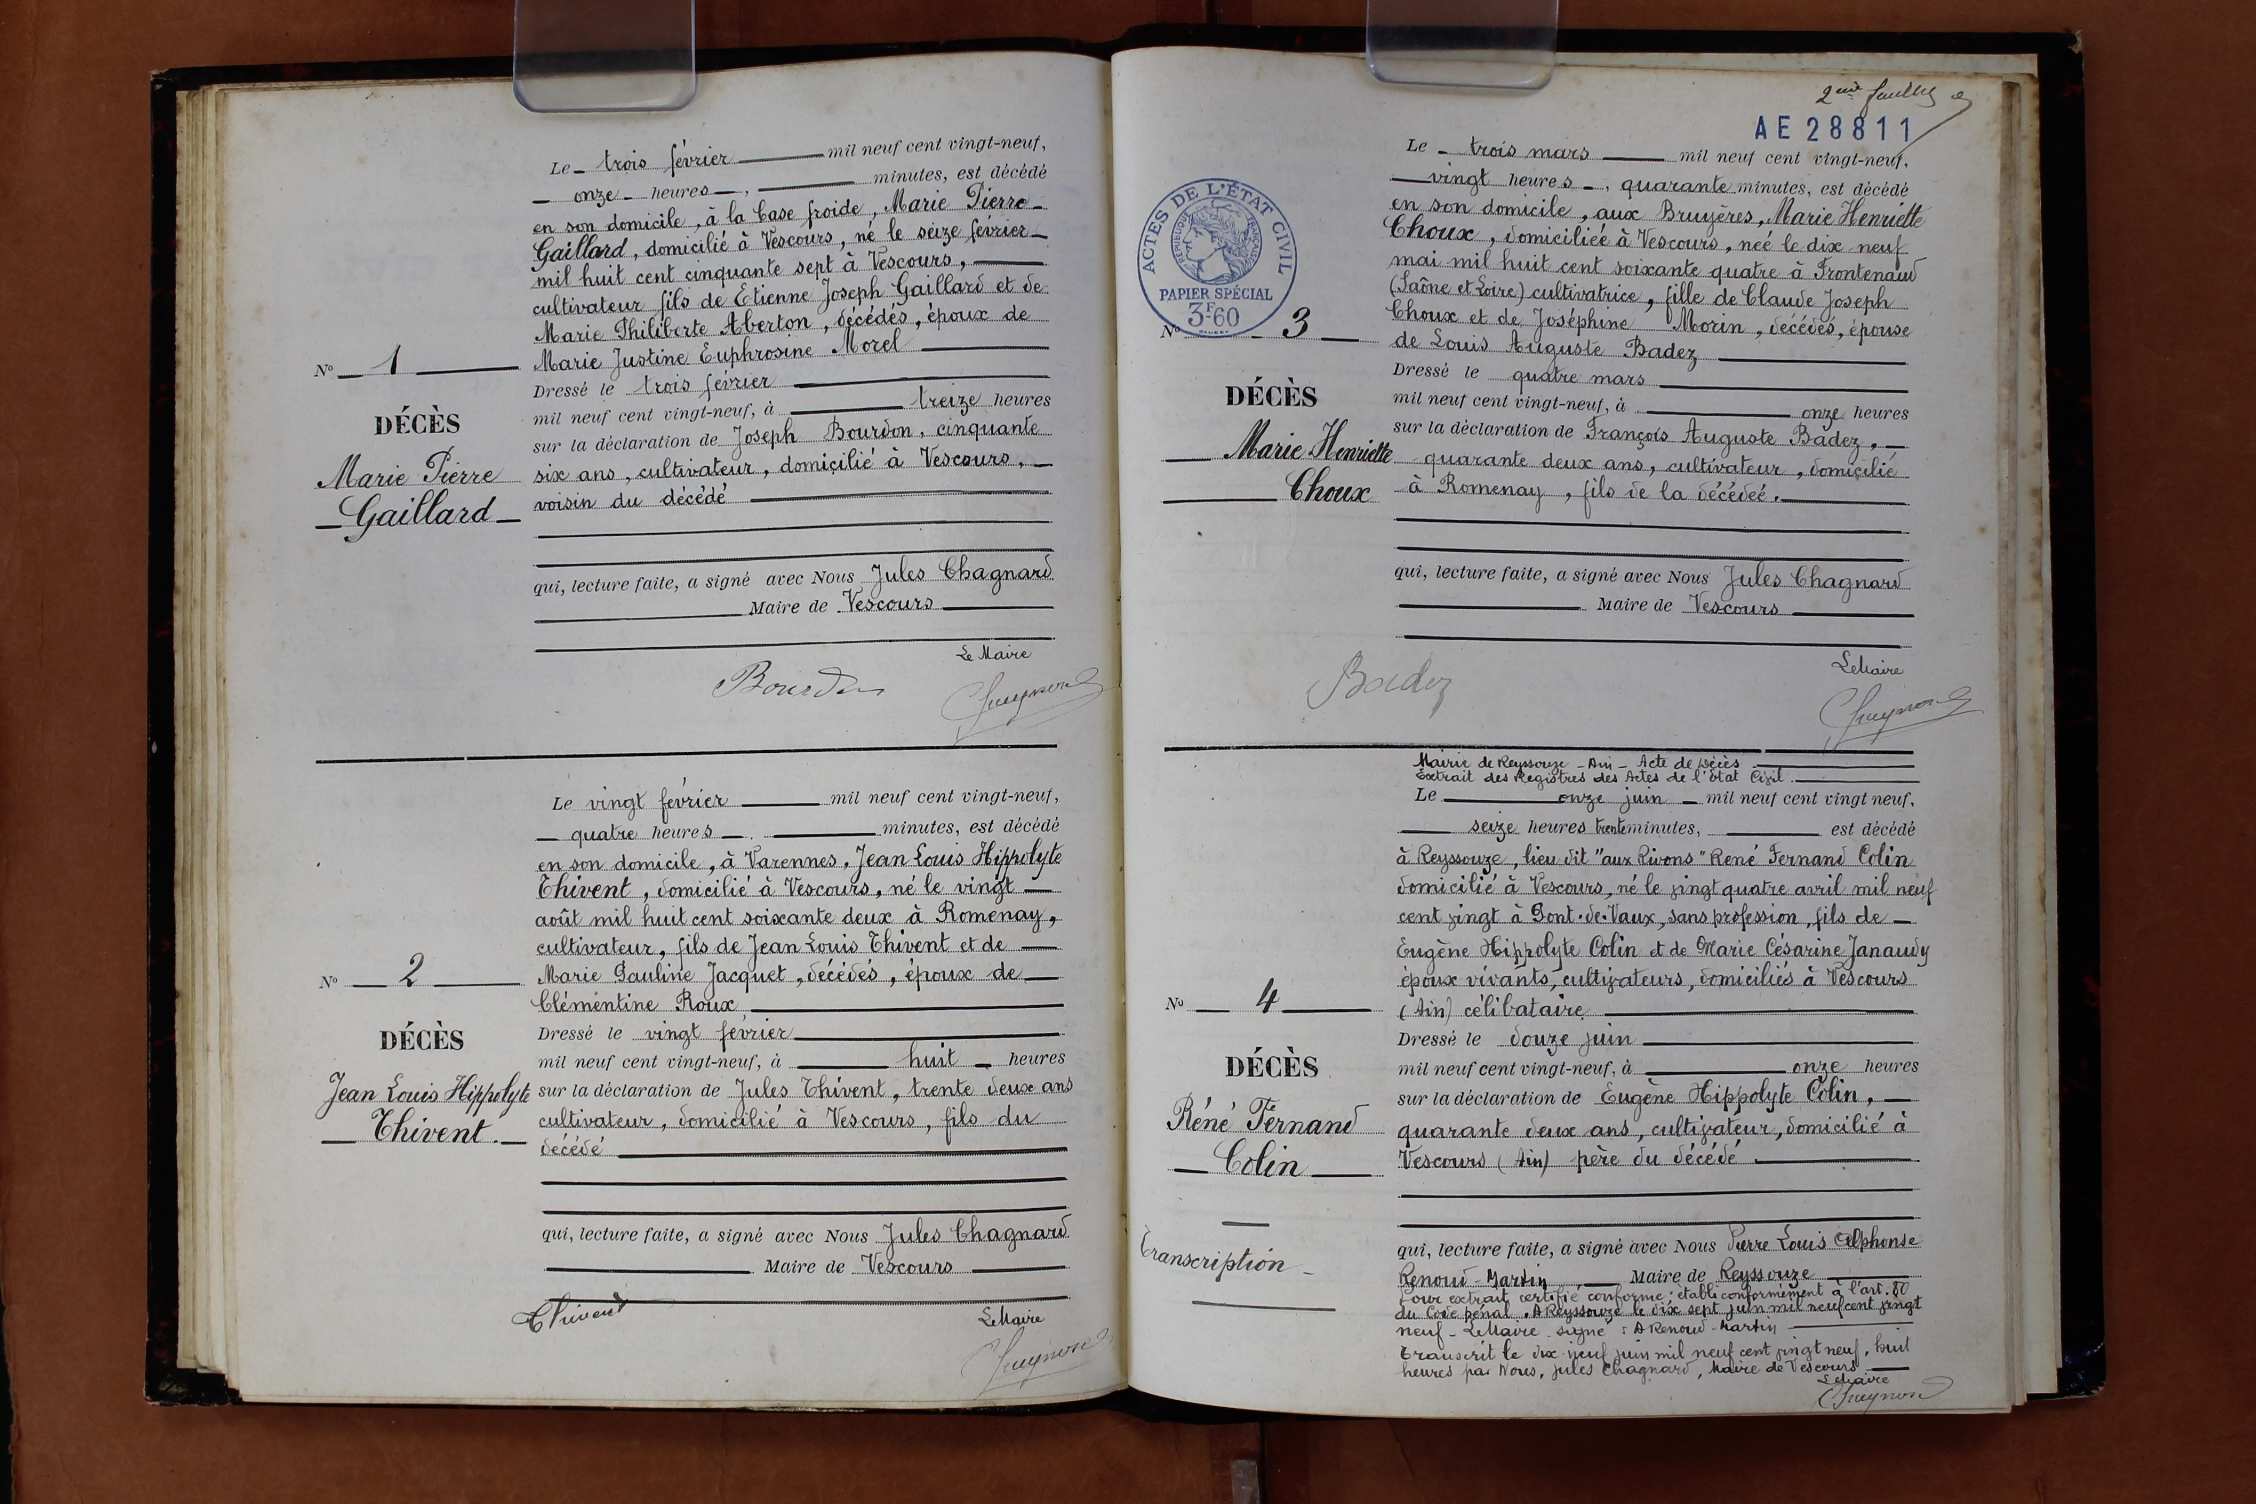 Le trois février mil neuf cent vingt-neuf,
onze heures, minutes, est décédé
en son domicile, à la Case froide, Marie Pierre
Gaillard, domicilié à Vescours, né le seize février
mil huit cent cinquante sept à Vescours,
cultivateur fils de Etienne Joseph Gaillard et de
Marie Philiberte Aberton, décédés, époux de
Marie Justine Euphrosine Morel
Nº 1
DÉCÈS
Marie Pierre
Gaillard
Dressé le trois février
mil neuf cent vingt-neuf, à treize heures
sur la déclaration de Joseph Bourdon, cinquante
six ans, cultivateur, domicilié à Vescours,
voisin du décédé
qui, lecture faite, a signé avec Nous Jules Chagnard
Maire de Vescours
Le Maire
Bourdon
Chagnard
Le vingt février mil neuf cent vingt-neuf,
quatre heures minutes, est décédé
en son domicile, à Varennes, Jean Louis Hippolyte
Thivent, domicilié à Vescours, né le vingt
août mil huit cent soixante deux à Romenay,
cultivateur, fils de Jean Louis Thivent et de
Marie Pauline Jacquet, décédés, époux de
Clémentine Roux
Nº 2
DÉCÈS
Jean Louis Hippolyte
Thivent.
Dressé le vingt février
mil neuf cent vingt-neuf, à huit heures
sur la déclaration de Jules Thivent, trente deux ans
cultivateur, domicilié à Vescours, fils du
décédé
qui, lecture faite, a signé avec Nous Jules Chagnard
Maire de Vescours
Thivent
Le Maire
Chagnard
2ème feuillet
AE 28811
ACTES DE L'ÉTAT CIVIL
RÉPUBLIQUE FRANÇAISE
PAPIER SPÉCIAL
3F.60
Le trois mars mil neuf cent vingt-neuf,
vingt heures, quarante minutes, est décédé
en son domicile, aux Bruyères, Marie Henriette
Choux, domiciliée à Vescours, née le dix neuf
mai mil huit cent soixante quatre à Frontenaud
(Saône et Loire) cultivatrice, fille de Claude Joseph
Choux et de Joséphine Morin, décédés, épouse
de Louis Auguste Badez
Nº 3
DÉCÈS
Marie Henriette
Choux
Dressé le quatre mars
mil neuf cent vingt-neuf, à onze heures
sur la déclaration de François Auguste Badez,
quarante deux ans, cultivateur, domicilié
à Romenay, fils de la décédée.
qui, lecture faite, a signé avec Nous Jules Chagnard
Maire de Vescours
Le Maire
Badez
Chagnard
Mairie de Reyssouze - Ain - Acte de Décès
Extrait des Registres des Actes de l'Etat Civil
Le onze juin mil neuf cent vingt neuf,
seize heures trente minutes, est décédé
à Reyssouze, lieu dit "aux Rivons" René Fernand Colin
domicilié à Vescours, né le vingt quatre avril mil neuf
cent vingt à Pont-de-Vaux, sans profession, fils de
Eugène Hippolyte Colin et de Marie Césarine Janaudy
époux vivants, cultivateurs, domiciliés à Vescours
(Ain) célibataire
Nº 4
DÉCÈS
Réné Fernand
Colin
Transcription
Dressé le douze juin
mil neuf cent vingt-neuf, à onze heures
sur la déclaration de Eugène Hippolyte Colin,
quarante deux ans, cultivateur, domicilié à
Vescours (Ain) père du décédé
qui, lecture faite, a signé avec Nous Pierre Louis Alphonse
Renoud-Martin Maire de Reyssouze
Pour extrait certifié conforme; établi conformément à l'art. 80
du Code pénal. A Reyssouze le dix sept juin mil neuf cent vingt
neuf - Le Maire signé : A Renoud-Martin
Transcrit le dix-neuf juin mil neuf cent vingt neuf, huit
heures par Nous, Jules Chagnard, Maire de Vescours
Le Maire
Chagnard